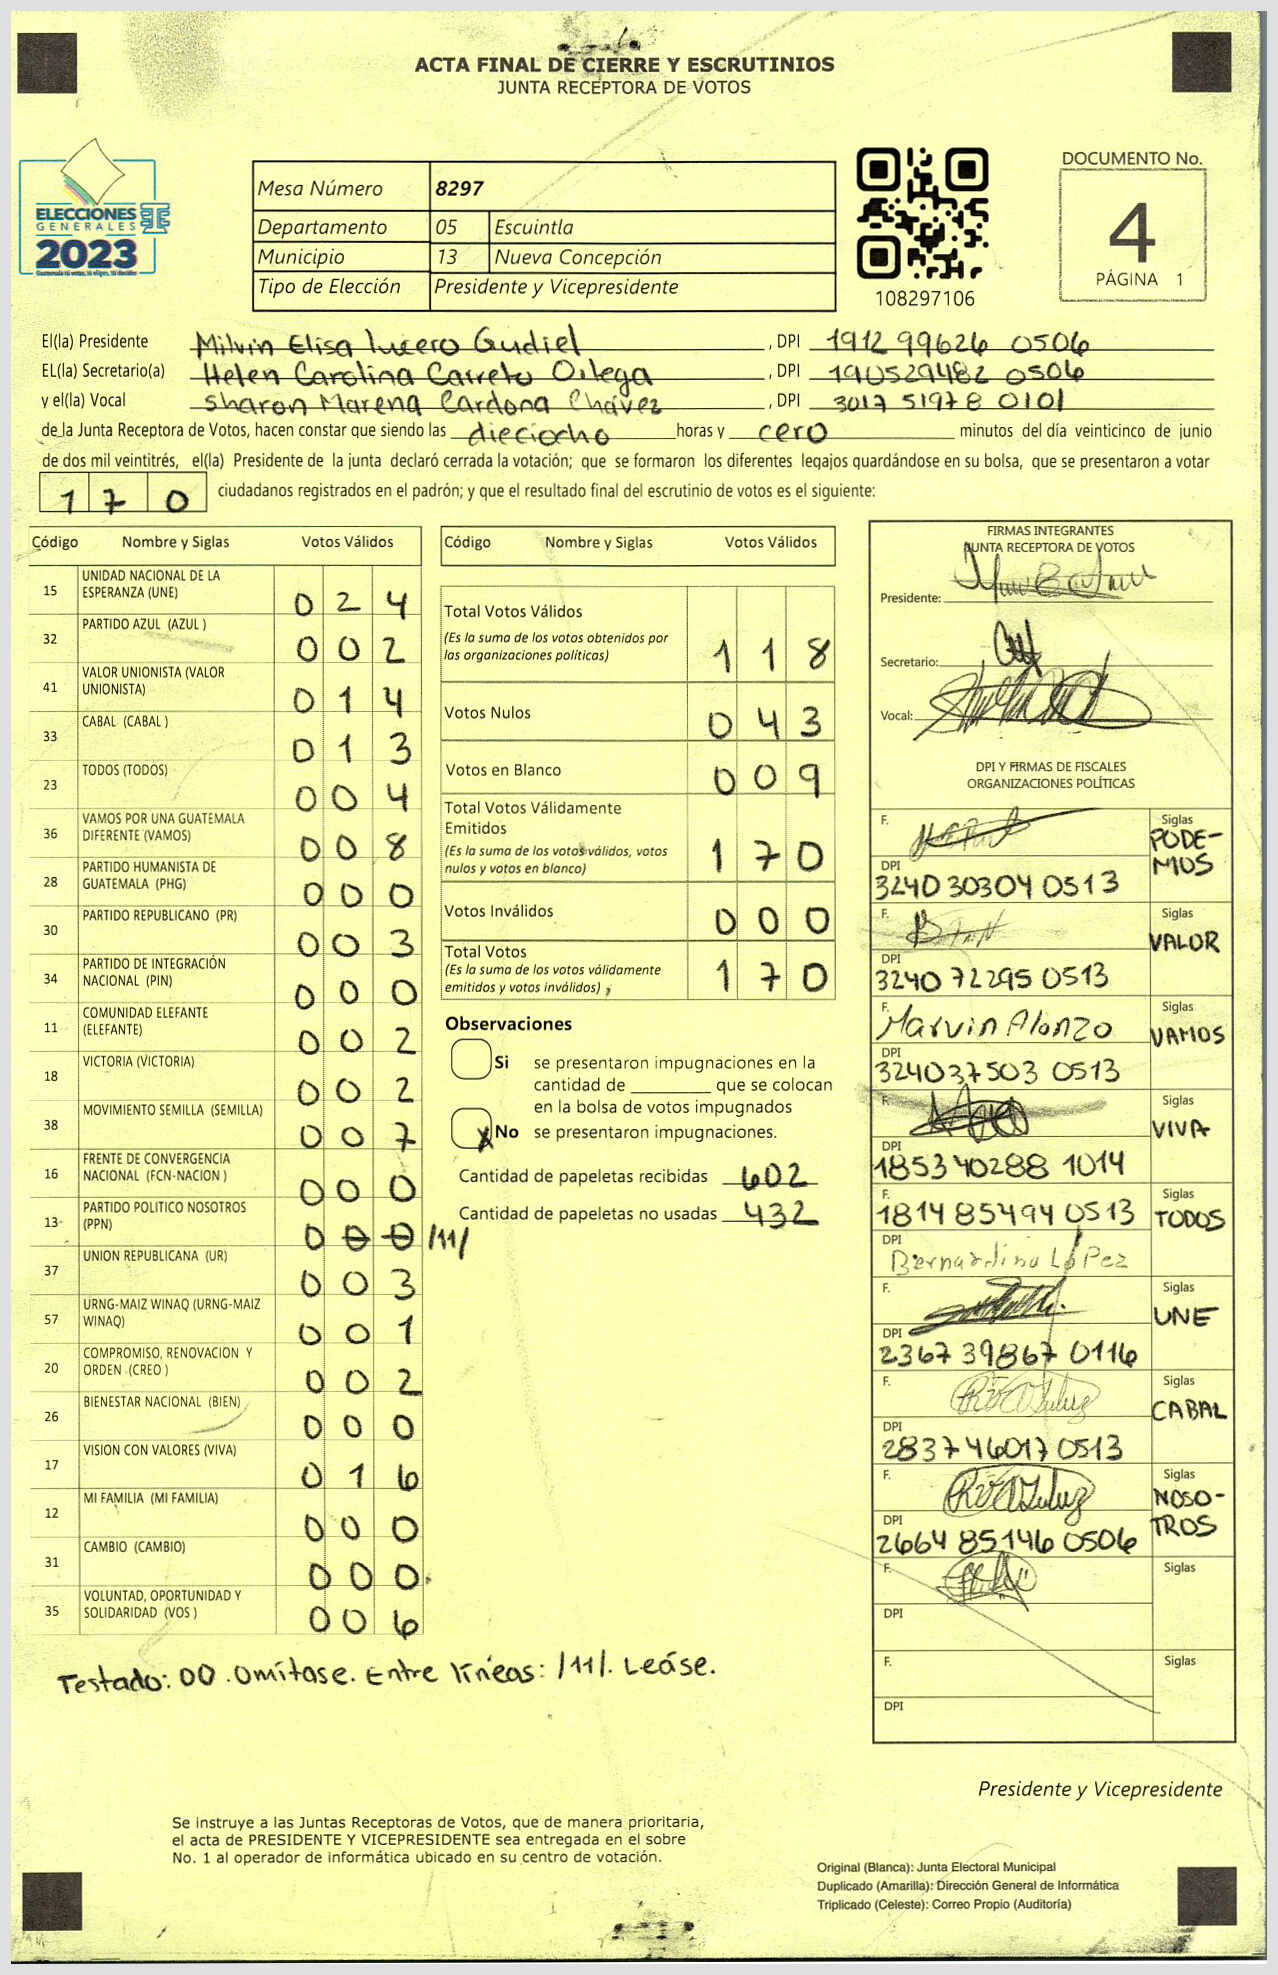 ACTA FINAL DE CIERRE Y ESCRUTINIOS
JUNTA RECEPTORA DE VOTOS
ELECCIONES
GENERALES
2023
Mesa Número 8297
Departamento 05 Escuintla
Municipio 13 Nueva Concepción
Tipo de Elección Presidente y Vicepresidente
108297106
DOCUMENTO No.
4
PÁGINA 1
El(la) Presidente Milvin Elisa lucero Gudiel, DPI 1912 99626 0506
EL(la) Secretario(a) Helen Carolina Carreto Ortega, DPI 190529482 0506
y el(la) Vocal Sharon Marena Cardona Chávez, DPI 3017 51978 0101
de la Junta Receptora de Votos, hacen constar que siendo las dieciocho horas y cero minutos del día veinticinco de junio
de dos mil veintitrés, el(la) Presidente de la junta declaró cerrada la votación; que se formaron los diferentes legajos quardándose en su bolsa, que se presentaron a votar
170 ciudadanos registrados en el padrón; y que el resultado final del escrutinio de votos es el siguiente:
Código Nombre y Siglas Votos Válidos
15 UNIDAD NACIONAL DE LA ESPERANZA (UNE) 024
32 PARTIDO AZUL (AZUL ) 002
41 VALOR UNIONISTA (VALOR UNIONISTA) 014
33 CABAL (CABAL ) 013
23 TODOS (TODOS) 004
36 VAMOS POR UNA GUATEMALA DIFERENTE (VAMOS) 008
28 PARTIDO HUMANISTA DE GUATEMALA (PHG) 000
30 PARTIDO REPUBLICANO (PR) 003
34 PARTIDO DE INTEGRACIÓN NACIONAL (PIN) 000
11 COMUNIDAD ELEFANTE (ELEFANTE) 002
18 VICTORIA (VICTORIA) 002
38 MOVIMIENTO SEMILLA (SEMILLA) 007
16 FRENTE DE CONVERGENCIA NACIONAL (FCN-NACION ) 000
13 PARTIDO POLITICO NOSOTROS (PPN) 000 /11/
37 UNION REPUBLICANA (UR) 003
57 URNG-MAIZ WINAQ (URNG-MAIZ WINAQ) 001
20 COMPROMISO, RENOVACION Y ORDEN (CREO ) 002
26 BIENESTAR NACIONAL (BIEN) 000
17 VISION CON VALORES (VIVA) 016
12 MI FAMILIA (MI FAMILIA) 000
31 CAMBIO (CAMBIO) 000
35 VOLUNTAD, OPORTUNIDAD Y SOLIDARIDAD (VOS ) 006
Testado: 00. Omítase. Entre líneas: /11/. Leáse.
Código Nombre y Siglas Votos Válidos
Total Votos Válidos
(Es la suma de los votos obtenidos por
las organizaciones políticas) 118
Votos Nulos 043
Votos en Blanco 009
Total Votos Válidamente
Emitidos
(Es la suma de los votos válidos, votos
nulos y votos en blanco) 170
Votos Inválidos 000
Total Votos
(Es la suma de los votos válidamente
emitidos y votos inválidos) 170
Observaciones
Si se presentaron impugnaciones en la
cantidad de ________ que se colocan
en la bolsa de votos impugnados
X No se presentaron impugnaciones.
Cantidad de papeletas recibidas 602
Cantidad de papeletas no usadas 432
FIRMAS INTEGRANTES
JUNTA RECEPTORA DE VOTOS
Presidente:
Secretario:
Vocal:
DPI Y FIRMAS DE FISCALES
ORGANIZACIONES POLÍTICAS
F. Siglas PODE-
MOS
DPI 3240 30304 0513
F. Siglas VALOR
DPI 3240 72295 0513
F. Marvin Alonzo Siglas VAMOS
DPI 324037503 0513
F. Siglas VIVA
DPI 185340288 1014
F. 1814 85494 0513 Siglas TODOS
DPI Bernardino López
F. Siglas UNE
DPI 2367 39867 0116
F. Siglas CABAL
DPI 2837 46017 0513
F. Siglas NOSO-
TROS
DPI 2664 85146 0506
F. Siglas
DPI
F. Siglas
DPI
Presidente y Vicepresidente
Se instruye a las Juntas Receptoras de Votos, que de manera prioritaria,
el acta de PRESIDENTE Y VICEPRESIDENTE sea entregada en el sobre
No. 1 al operador de informática ubicado en su centro de votación.
Original (Blanca): Junta Electoral Municipal
Duplicado (Amarilla): Dirección General de Informática
Triplicado (Celeste): Correo Propio (Auditoría)